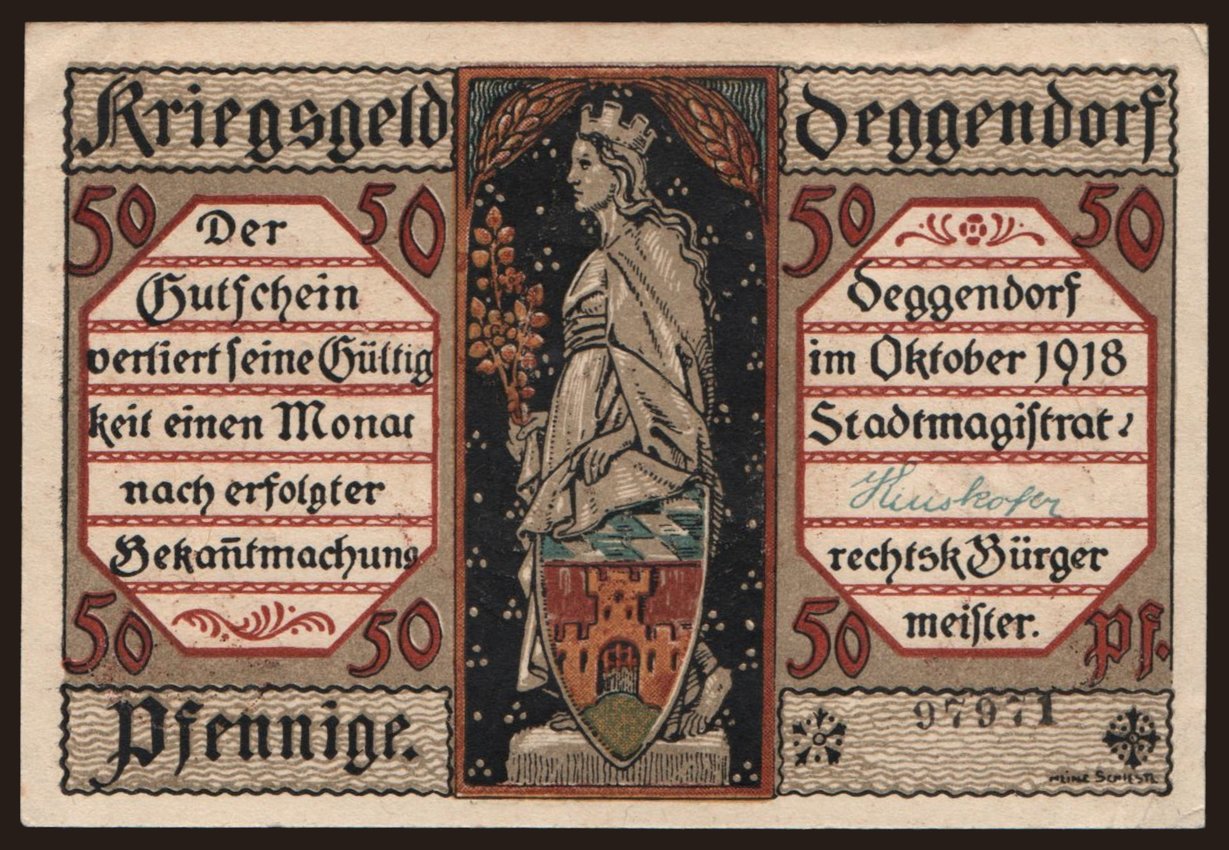 Kriegsgeld
Deggendorf
50 50
Der
Gutschein
verliert seine Gültig
keit einen Monat
nach erfolgter
Bekan̄tmachung
50 50
Pfennige.
50 50
Deggendorf
im Oktober 1918
Stadtmagistrat:
rechtsk Bürger
meister.
50 Pf.
97971
HEINZ SCHIESTL